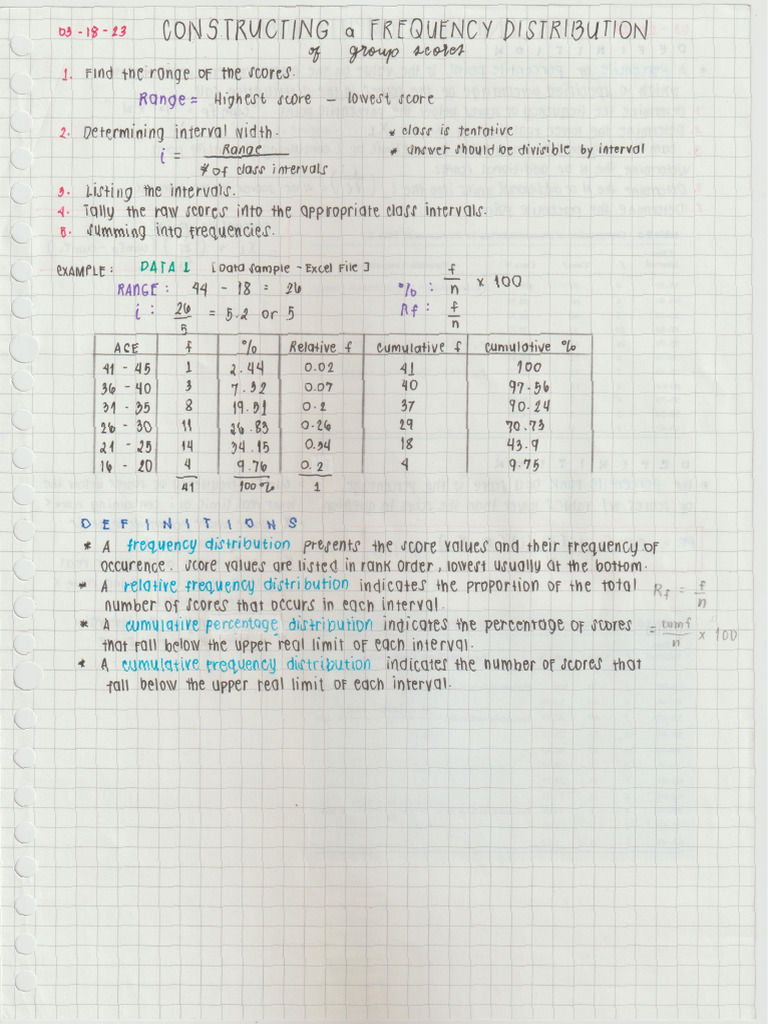 03-18-23 CONSTRUCTING a FREQUENCY DISTRIBUTION
of group scores
1. Find the range of the scores.
Range = Highest score - lowest score
2. Determining interval width. * class is tentative
i = Range / # of class intervals * answer should be divisible by interval
3. Listing the intervals.
4. Tally the raw scores into the appropriate class intervals.
5. Summing into frequencies.
EXAMPLE: DATA 1 [Data Sample - Excel File]
RANGE: 44 - 18 = 26 %: f/n x 100
i: 26/5 = 5.2 or 5 Rf: f/n
AGE f % Relative f Cumulative f Cumulative %
41 - 45 1 2.44 0.02 41 100
36 - 40 3 7.32 0.07 40 97.56
31 - 35 8 19.51 0.2 37 90.24
26 - 30 11 26.83 0.26 29 70.73
21 - 25 14 34.15 0.34 18 43.9
16 - 20 4 9.76 0.2 4 9.75
41 100% 1
DEFINITIONS
* A frequency distribution presents the score values and their frequency of
occurence. Score values are listed in rank order, lowest usually at the bottom.
* A relative frequency distribution indicates the proportion of the total Rf = f/n
number of scores that occurs in each interval.
* A cumulative percentage distribution indicates the percentage of scores = cumf/n x 100
that fall below the upper real limit of each interval.
* A cumulative frequency distribution indicates the number of scores that
fall below the upper real limit of each interval.